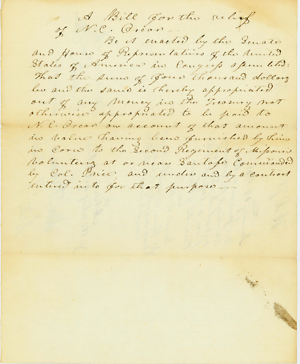 A Bill for the relief
of N. C.
Be it enacted by the Senate
and House of Representatives of the United
States of America in Congress assembled:
That the sum of four thousand dollars
be and the same is hereby appropriated
out of any money in the Treasury not
otherwise appropriated to be paid to
N. C. on account of that amount
in value having been furnished by him
in corn to the Second Regiment of Missouri
Volunteers at or near Santa Fe Commanded
by Col. Price and under and by a contract
entered into for that purpose